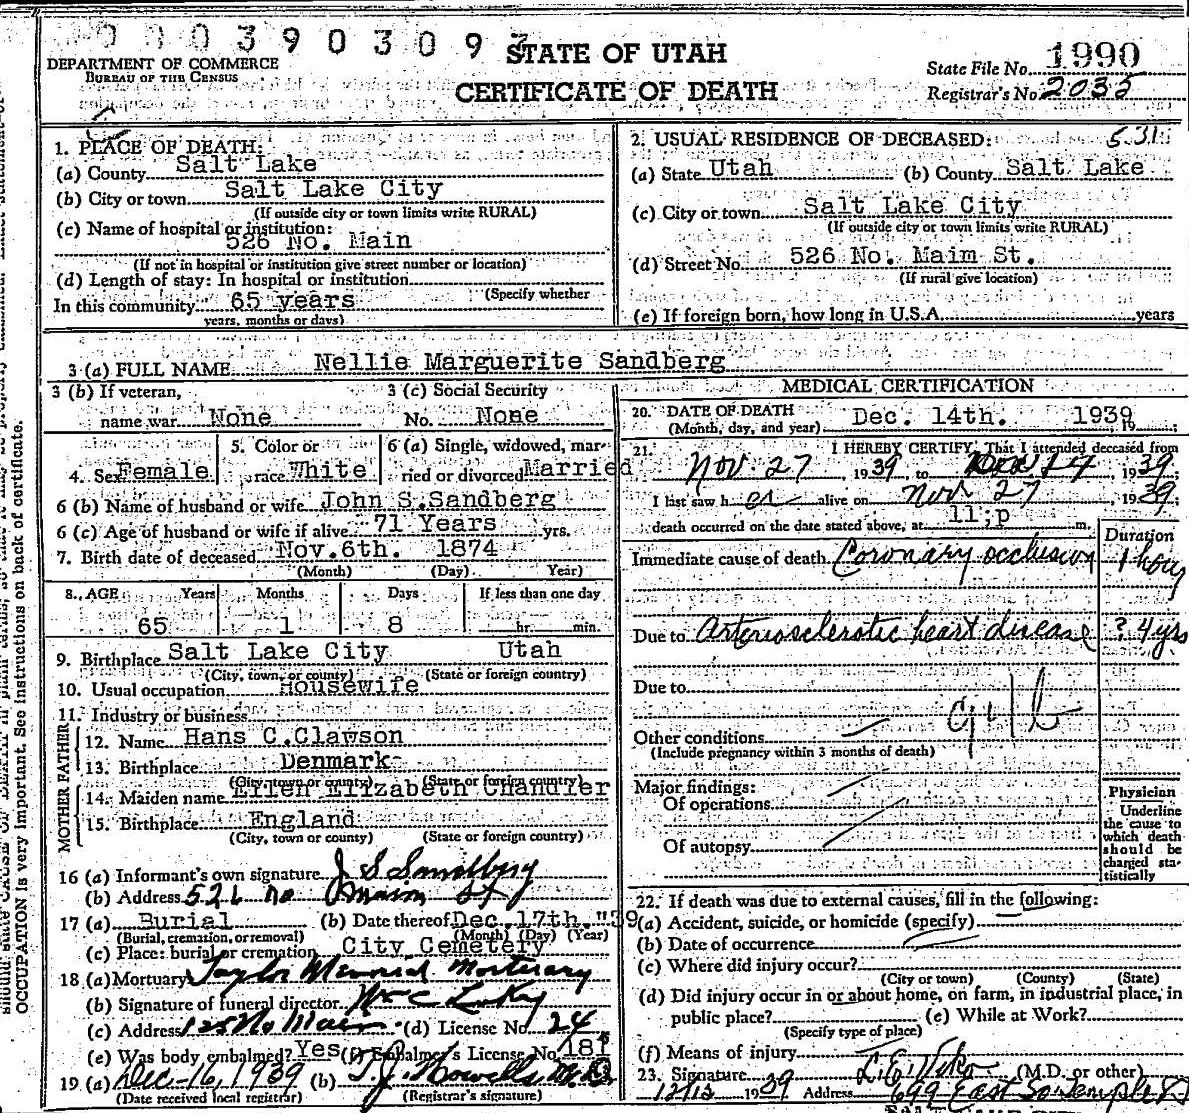 0 0 0 3 9 0 3 0 9
STATE OF UTAH
CERTIFICATE OF DEATH
DEPARTMENT OF COMMERCE
BUREAU OF THE CENSUS
State File No. 1990
Registrar's No. 2035
531
1. PLACE OF DEATH:
(a) County Salt Lake
(b) City or town Salt Lake City
(If outside city or town limits write RURAL)
(c) Name of hospital or institution:
526 No. Main
(If not in hospital or institution give street number or location)
(d) Length of stay: In hospital or institution
(Specify whether
In this community 65 years
years, months or days)
2. USUAL RESIDENCE OF DECEASED:
(a) State Utah (b) County Salt Lake
(c) City or town Salt Lake City
(If outside city or town limits write RURAL)
(d) Street No. 526 No. Maim St.
(If rural give location)
(e) If foreign born, how long in U.S.A. years
3 (a) FULL NAME Nellie Marguerite Sandberg
3 (b) If veteran, name war None
3 (c) Social Security No. None
4. Sex Female
5. Color or race White
6 (a) Single, widowed, married or divorced Married
6 (b) Name of husband or wife John S.Sandberg
6 (c) Age of husband or wife if alive 71 Years yrs.
7. Birth date of deceased Nov.6th. 1874
(Month) (Day) (Year)
8. AGE Years Months Days If less than one day
65 1 8 hr. min.
9. Birthplace Salt Lake City Utah
(City, town, or county) (State or foreign country)
10. Usual occupation Housewife
11. Industry or business
FATHER
12. Name Hans C.Clawson
13. Birthplace Denmark
(City, town or county) (State or foreign country)
MOTHER
14. Maiden name Ellen Elizabeth Chandler
15. Birthplace England
(City, town or county) (State or foreign country)
16 (a) Informant's own signature J S Sandberg
(b) Address 526 No Main St
17 (a) Burial (b) Date thereof Dec. 17th. "39
(Burial, cremation, or removal) (Month) (Day) (Year)
(c) Place: burial or cremation City Cemetery
18 (a) Mortuary Taylor Memorial Mortuary
(b) Signature of funeral director
(c) Address 125 No Main (d) License No. 24
(e) Was body embalmed? Yes (f) Embalmer's License No.
19 (a) Dec-16, 1939 (b) T.J. Howells M.D.
(Date received local registrar) (Registrar's signature)
MEDICAL CERTIFICATION
20. DATE OF DEATH Dec. 14th. 1939
(Month, day, and year) , 19
21. I HEREBY CERTIFY, That I attended deceased from
Nov. 27 1939, to Dec 14, 1939,
I last saw her alive on Nov 27 1939,
death occurred on the date stated above, at 11;p m.
Duration
Immediate cause of death Coronary occlusion 1 hour
Due to Arteriosclerotic heart disease ? 4 yrs
Due to
Other conditions
(Include pregnancy within 3 months of death)
Major findings:
Of operations
Of autopsy
Physician
Underline the cause to which death should be charged statistically
22. If death was due to external causes, fill in the following:
(a) Accident, suicide, or homicide (specify)
(b) Date of occurrence
(c) Where did injury occur?
(City or town) (County) (State)
(d) Did injury occur in or about home, on farm, in industrial place, in
public place? (e) While at Work?
(Specify type of place)
(f) Means of injury
23. Signature L.E. Viko (M.D. or other)
1939 Address 699 East So Temple St
OCCUPATION is very important. See instructions on back of certificate.